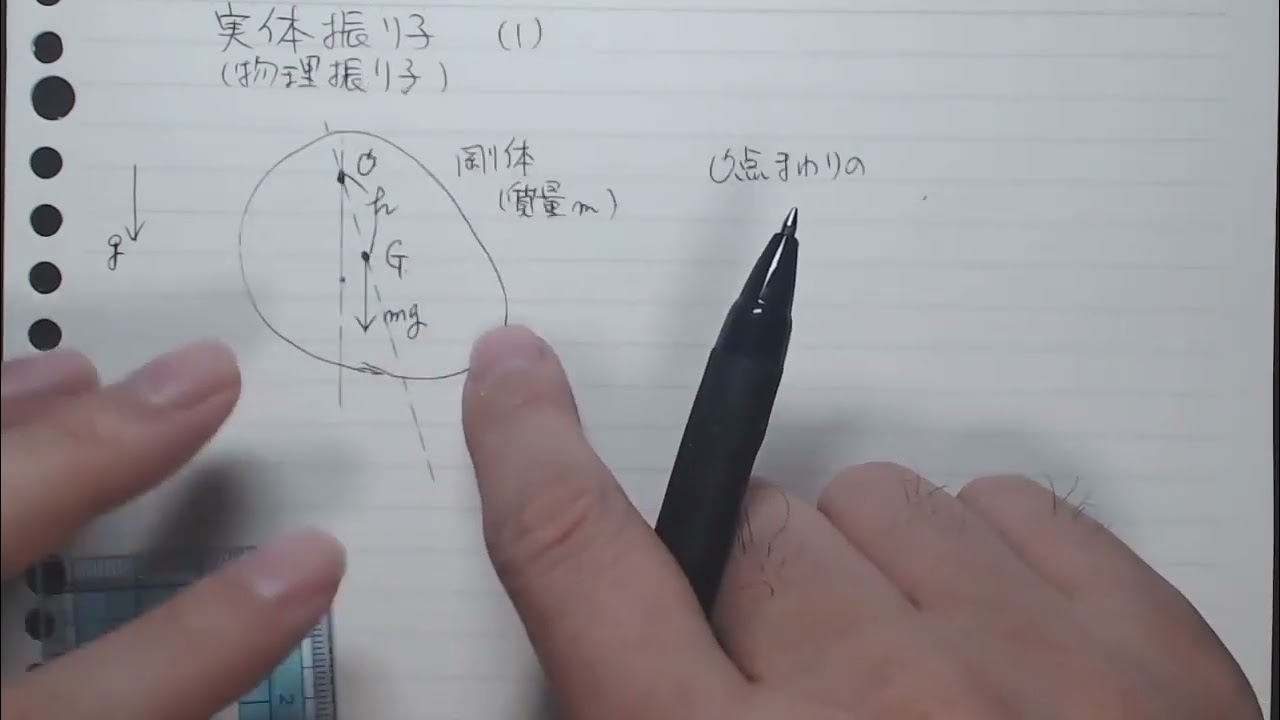 実体振り子 (1)
(物理振り子)
O
剛体
(質量m)
h
G
mg
g
O点まわりの
2